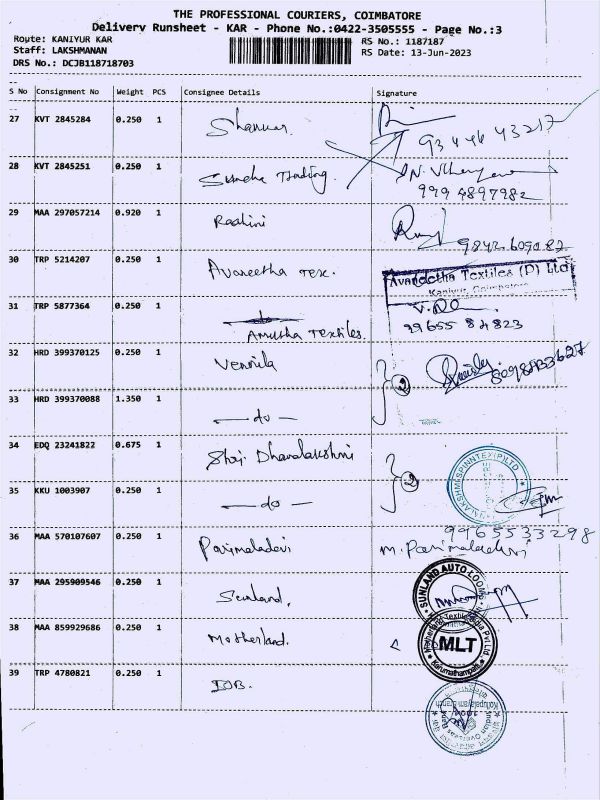 THE PROFESSIONAL COURIERS, COIMBATORE
Delivery Runsheet - KAR - Phone No.:0422-3505555 - Page No.:3
Route: KANIYUR KAR RS No.: 1187187
Staff: LAKSHMANAN RS Date: 13-Jun-2023
DRS No.: DCJB118718703
S No Consignment No Weight PCS Consignee Details Signature
27 KVT 2845284 0.250 1 Shankar.
93446 43217
28 KVT 2845251 0.250 1 Trading.
999 4897982
29 MAA 297057214 0.920 1
9842609087
30 TRP 5214207 0.250 1 Avaneetha Tex. Avaneetha Textiles (P) Ltd
Kaniyur, Coimbatore
31 TRP 5877364 0.250 1 do
Amrutha Textiles. 99655 84823
32 HRD 399370125 0.250 1 Vennila 2 8098933627
33 HRD 399370088 1.350 1 — do —
34 EDQ 23241822 0.675 1 Dhanalakshmi 2
35 KKU 1003907 0.250 1 — do —
9965533298
36 MAA 570107607 0.250 1 Parimaladevi m. Parimaladevi
37 MAA 295909546 0.250 1 Sunland. SUNLAND AUTO LOOMS
38 MAA 859929686 0.250 1 Motherland. MLT
Karumathampatti
39 TRP 4780821 0.250 1 IOB.
Indian Overseas